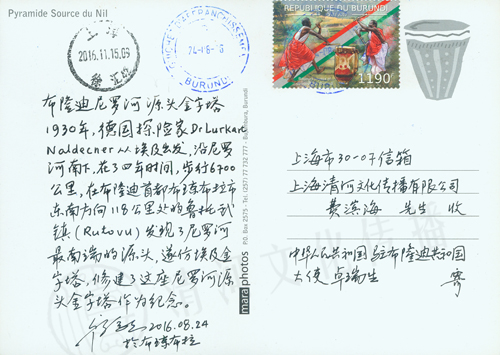 Pyramide Source du Nil
上海
2016.11.15.09
BURUNDI
REPUBLIQUE DU BURUNDI
1190
布隆迪尼罗河源头金字塔
1930年，德国探险家Dr Lurkart
Waldecner从埃及出发，沿尼罗
河南下，花了四年时间，步行6700
公里，在布隆迪首都布琼布拉市
东南方向118公里处的鲁托武
镇(Rutovu)发现了尼罗河
最南端的源头，遂仿埃及金
字塔，修建了这座尼罗河源
头金字塔作为纪念。
2016.08.24
于布琼布拉
maraphotos P.O. Box 2575 - Tel.: (257) 77 732 777 - Bujumbura, Burundi
上海市30-07信箱
上海清河文化传播有限公司
费滨海 先生 收
中华人民共和国驻布隆迪共和国
大使 卓瑞生 寄